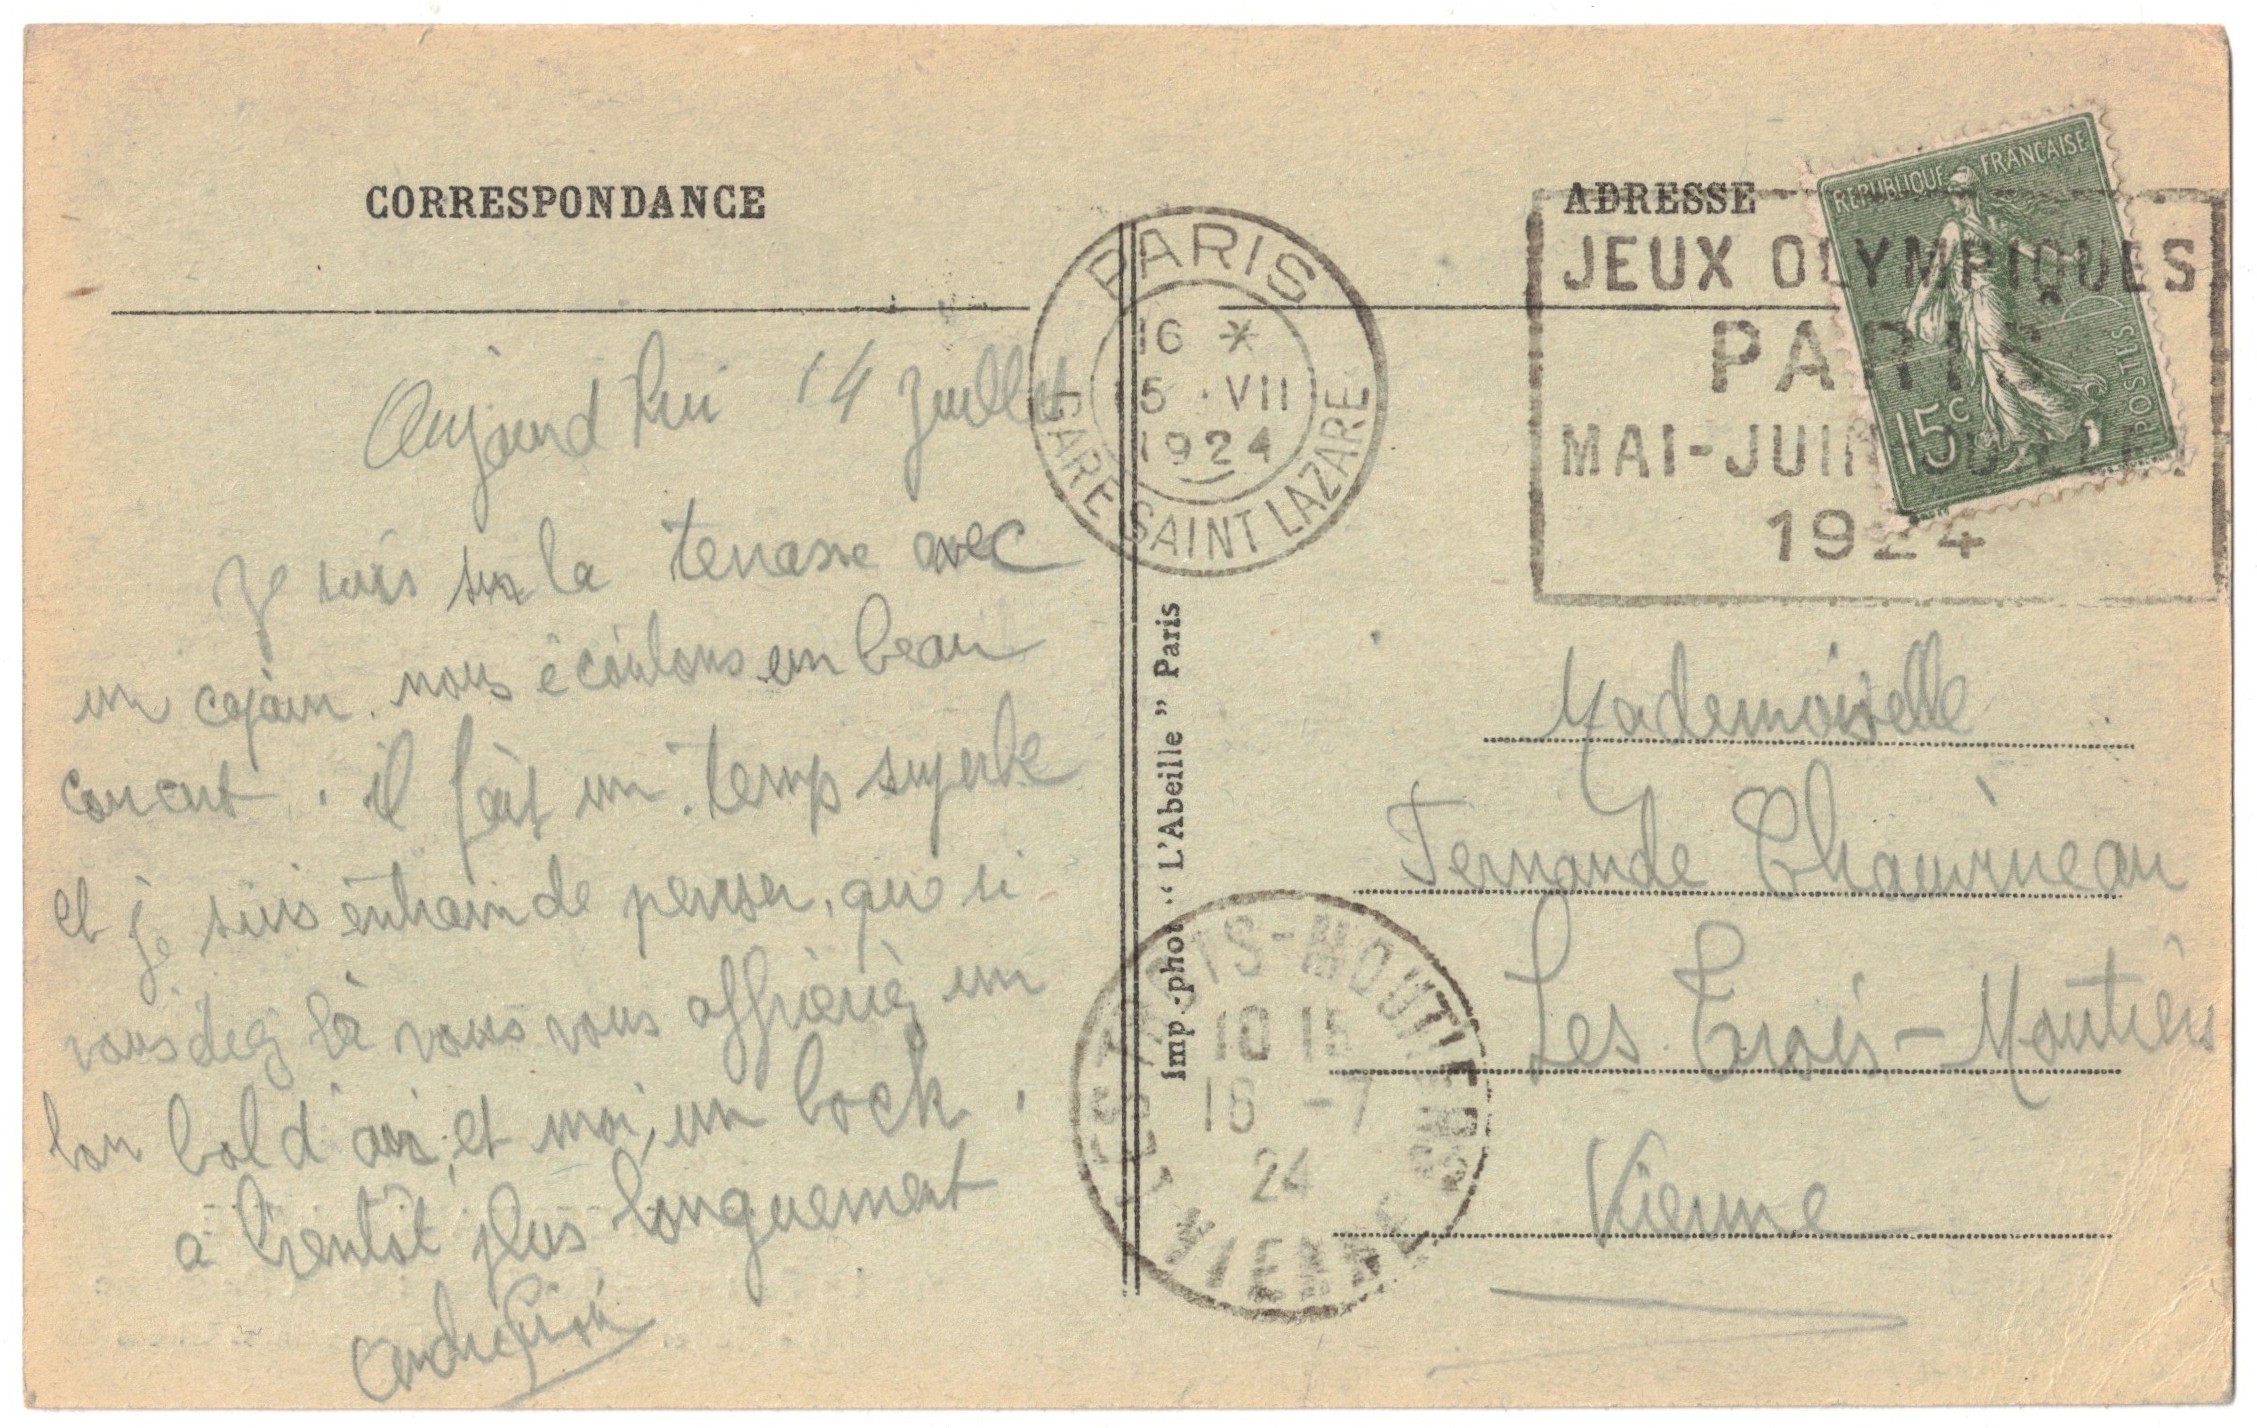 CORRESPONDANCE
Aujourd hui 14 Juillet
Je suis sur la terrasse avec
un copain. nous écoutons un beau
concert. il fait un temp superbe
et je suis entrain de penser, que si
vous étiez là vous vous offririez un
bon bol d'air, et moi, un bock.
à bientôt plus longuement
PARIS
16 *
15 VII
1924
GARE SAINT LAZARE
Imp.-phot. "L'Abeille" Paris
ADRESSE
JEUX OLYMPIQUES
PARIS
MAI-JUIN-JUILLET
1924
REPUBLIQUE FRANCAISE
15c
POSTES
Mademoiselle
Fernande
Les Trois-Moutiers
Vienne
LES TROIS-MOUTIERS
10 15
16 -7
24
VIENNE